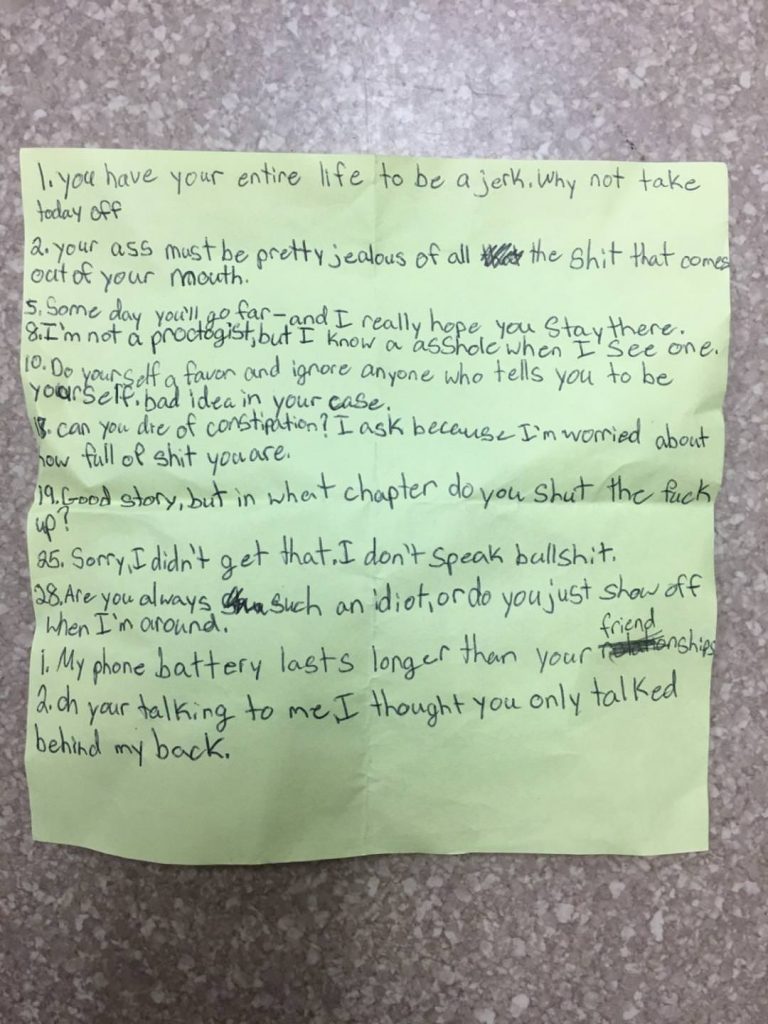 1. you have your entire life to be a jerk. Why not take
today off
2. your ass must be pretty jealous of all the shit that comes
out of your mouth.
5. Some day you'll go far-and I really hope you stay there.
8. I'm not a proctogist, but I know a asshole when I see one.
10. Do yourself a favor and ignore anyone who tells you to be
yourself. bad idea in your case.
13. can you die of constipation? I ask because I'm worried about
how full of shit you are.
19. Good story, but in what chapter do you shut the fuck
up?
25. Sorry, I didn't get that. I don't speak bullshit.
28. Are you always such an idiot, or do you just show off
when I'm around.
friend
1. My phone battery lasts longer than your relationships
2. oh your talking to me, I thought you only talked
behind my back.